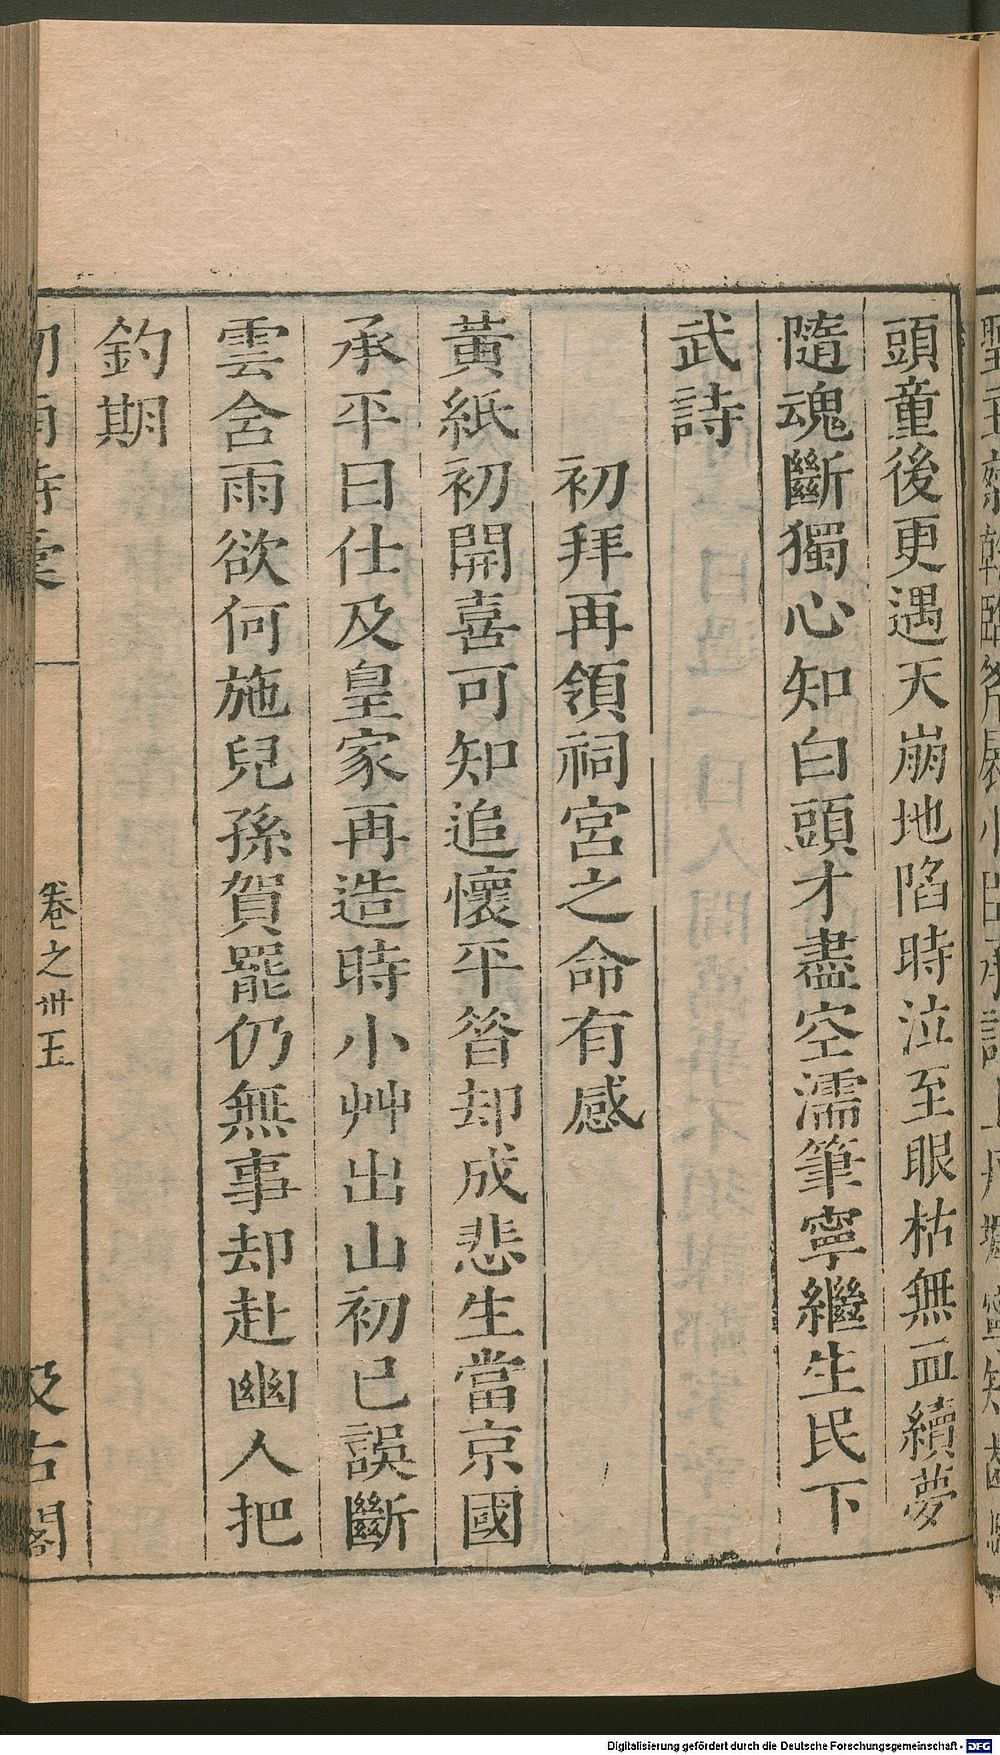 頭童後更遇天崩地陷時泣至眼枯無血續夢
隨魂斷獨心知白頭才盡空濡筆寧繼生民下
武詩
初拜再領祠宮之命有感
黃紙初開喜可知追懷平昝却成悲生當京國
承平日仕及皇家再造時小艸出山初已誤斷
雲舍雨欲何施兒孫賀罷仍無事却赴幽人把
釣期
卷之卅五
及古閣
Digitalisierung gefördert durch die Deutsche Forschungsgemeinschaft - DFG